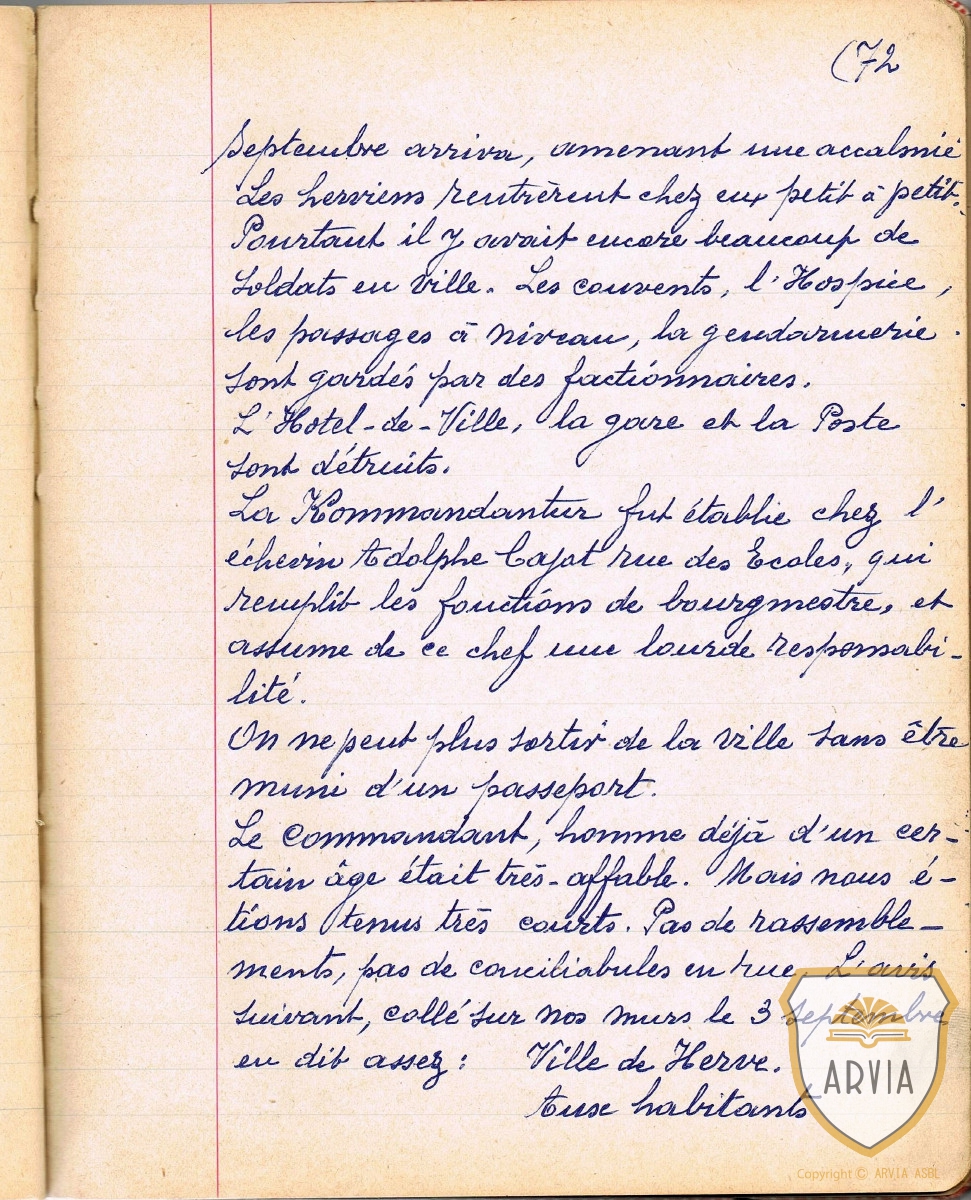 (72
Septembre arriva, amenant une accalmie
Les herviens rentrèrent chez eux petit à petit.
Pourtant il y avait encore beaucoup de
soldats en ville. Les couvents, l'Hospice,
les passages à niveau, la gendarmerie
sont gardés par des factionnaires.
L'Hotel-de-Ville, la gare et la Poste
sont détruits.
La Kommandantur fut établie chez l'
échevin Adolphe Cajot rue des Ecoles, qui
remplit les fonctions de bourgmestre, et
assume de ce chef une lourde responsabi-
lité.
On ne peut plus sortir de la ville sans être
muni d'un passeport.
Le Commandant, homme déjà d'un cer-
tain âge était très-affable. Mais nous é-
tions tenus très courts. Pas de rassemble-
ments, pas de conciliabules en rue. L'avis
suivant, collé sur nos murs le 3 septembre
en dit assez : Ville de Herve.
Aux habitants
ARVIA
Copyright © ARVIA ASBL